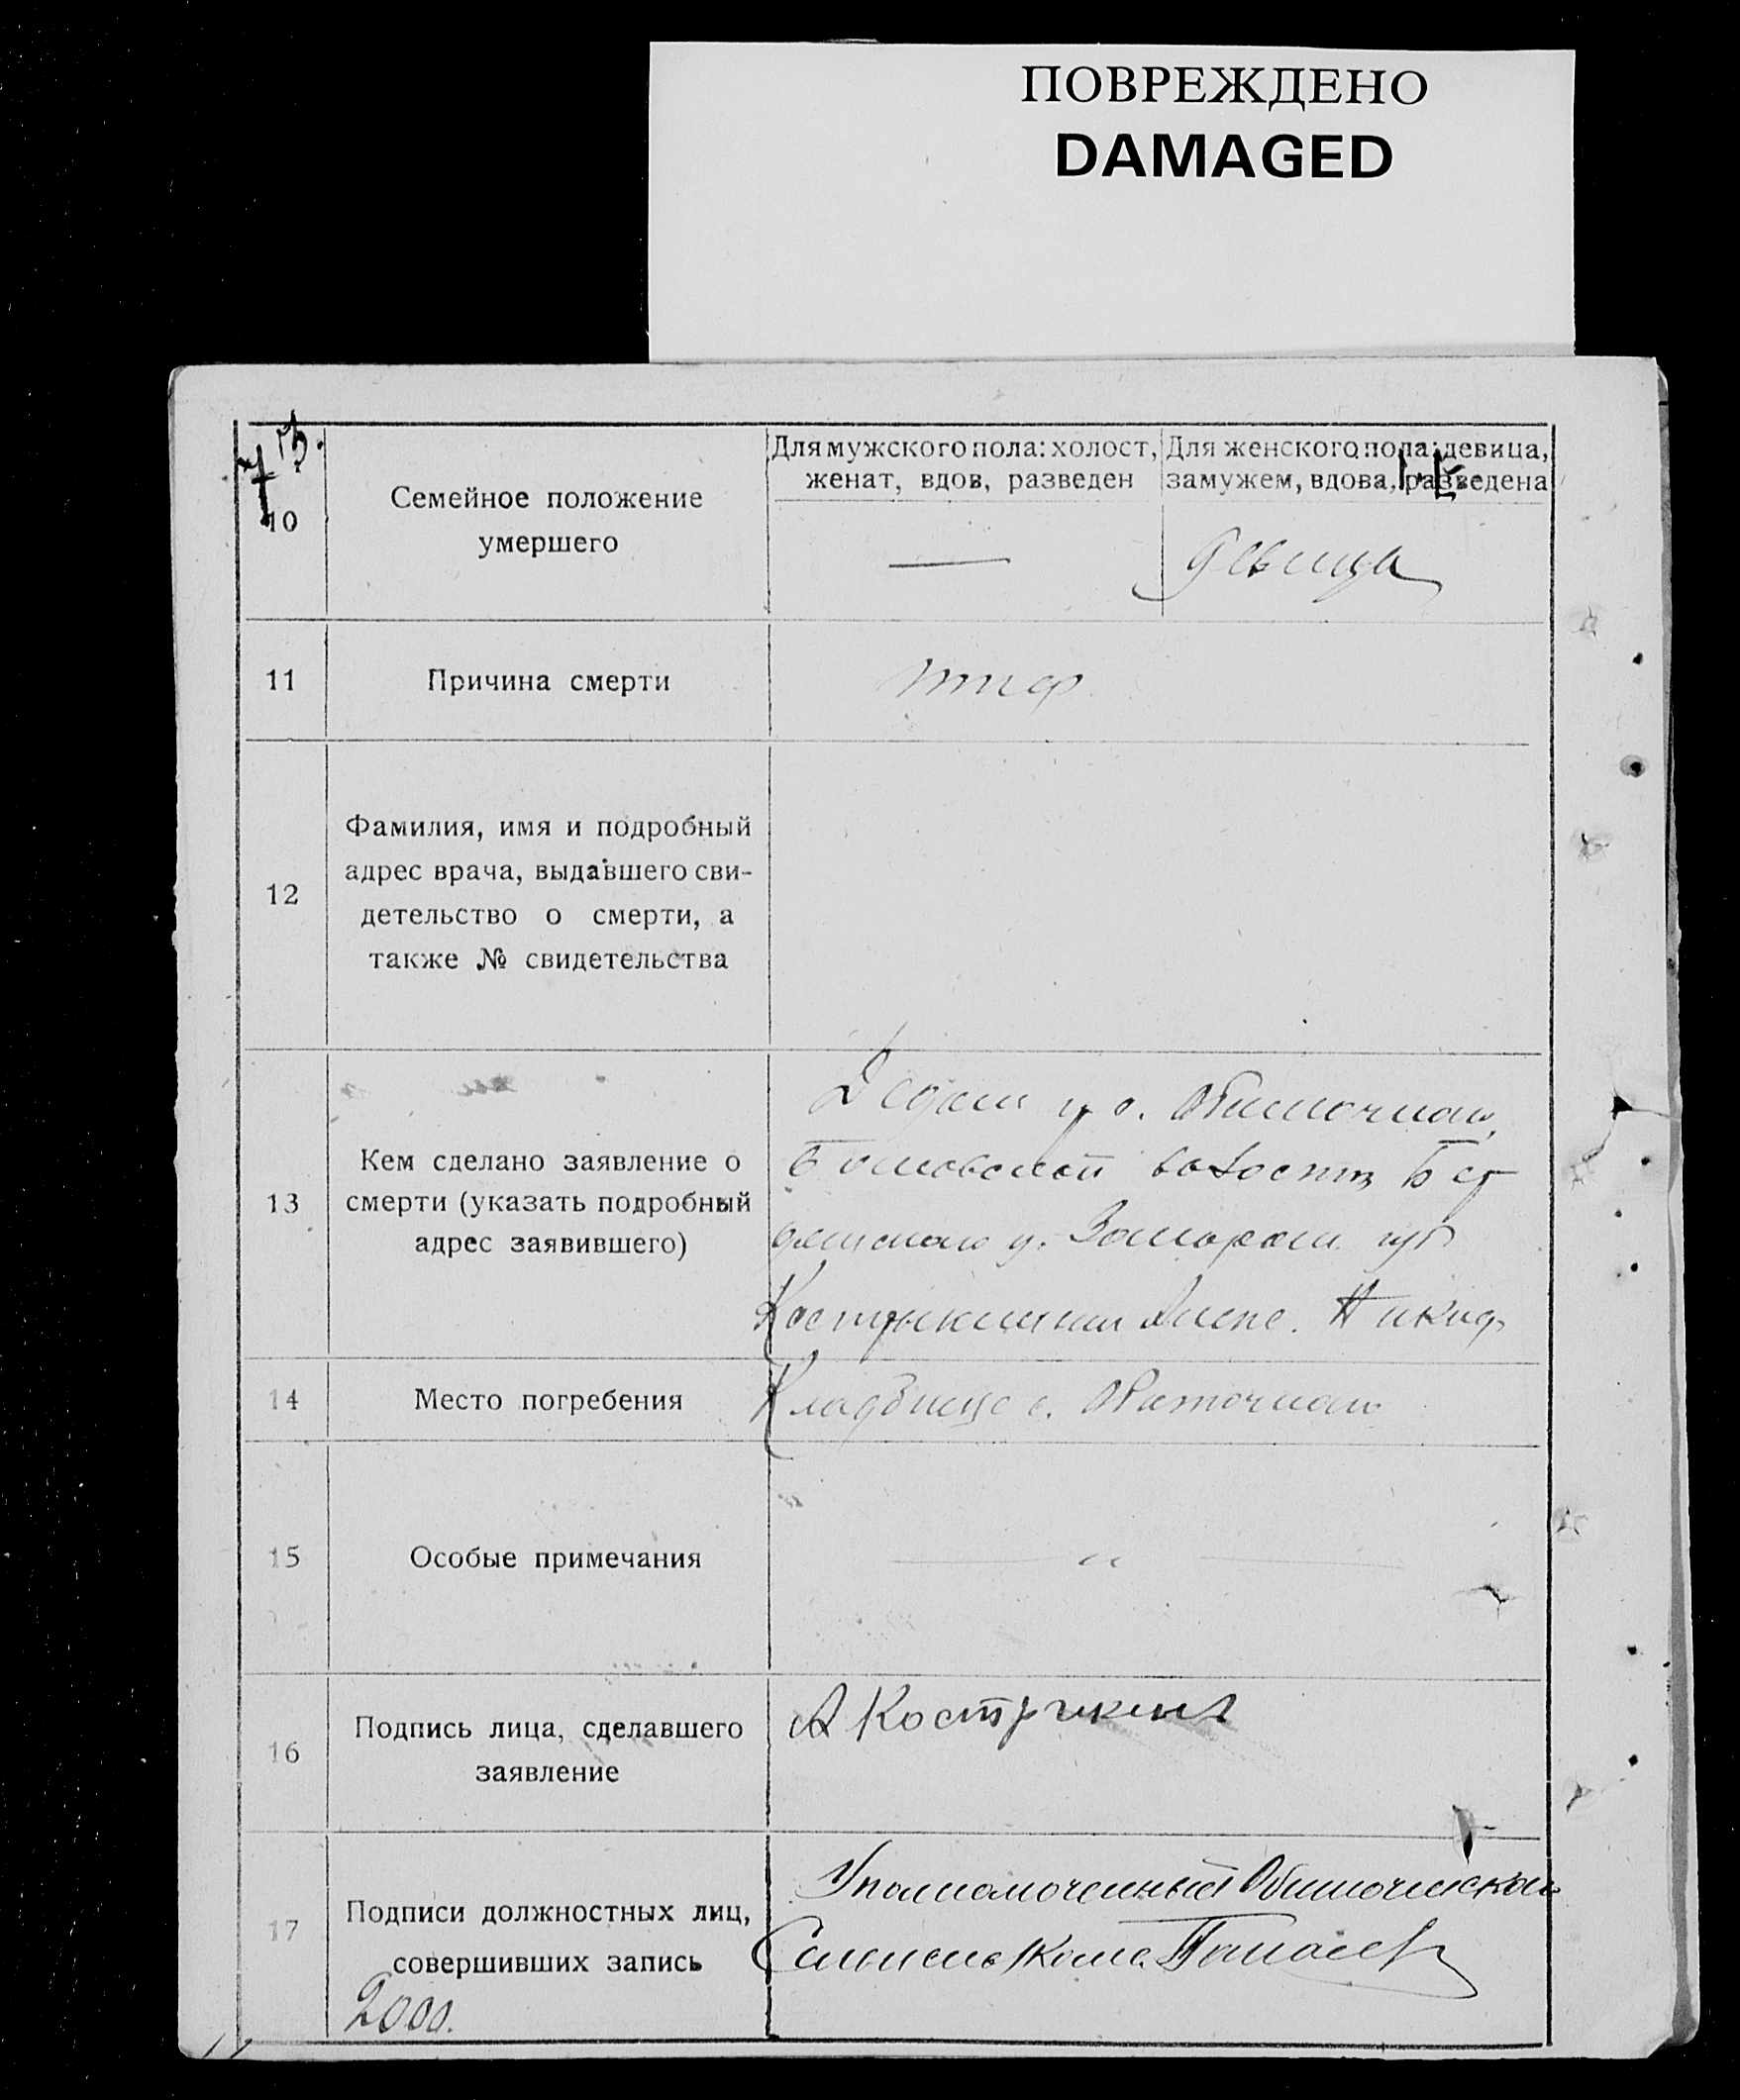 ПОВРЕЖДЕНО
DAMAGED
10
Семейное положение
умершего
Для мужского пола: холост,
женат, вдов, разведен
Для женского пола: девица,
замужем, вдова, разведена
—
девица
11
Причина смерти
тиф
12
Фамилия, имя и подробный
адрес врача, выдавшего сви-
детельство о смерти, а
также № свидетельства
13
Кем сделано заявление о
смерти (указать подробный
адрес заявившего)
Дедом с. Обиточнаго,
волости Бер
дянскаго у. Запорож. губ
14
Место погребения
Кладбище с. Обиточнаго
15
Особые примечания
— " —
16
Подпись лица, сделавшего
заявление
А Кострикин
17
Подписи должностных лиц,
совершивших запись
Уполномоченный Обиточнскаго
2000.